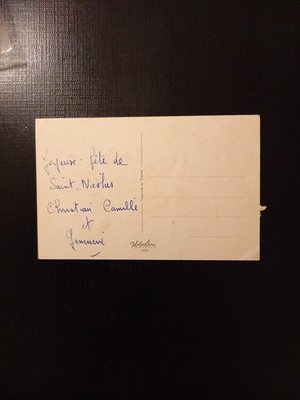 Joyeuse fête de
Saint Nicolas
Christian Camille
et
Geneviève